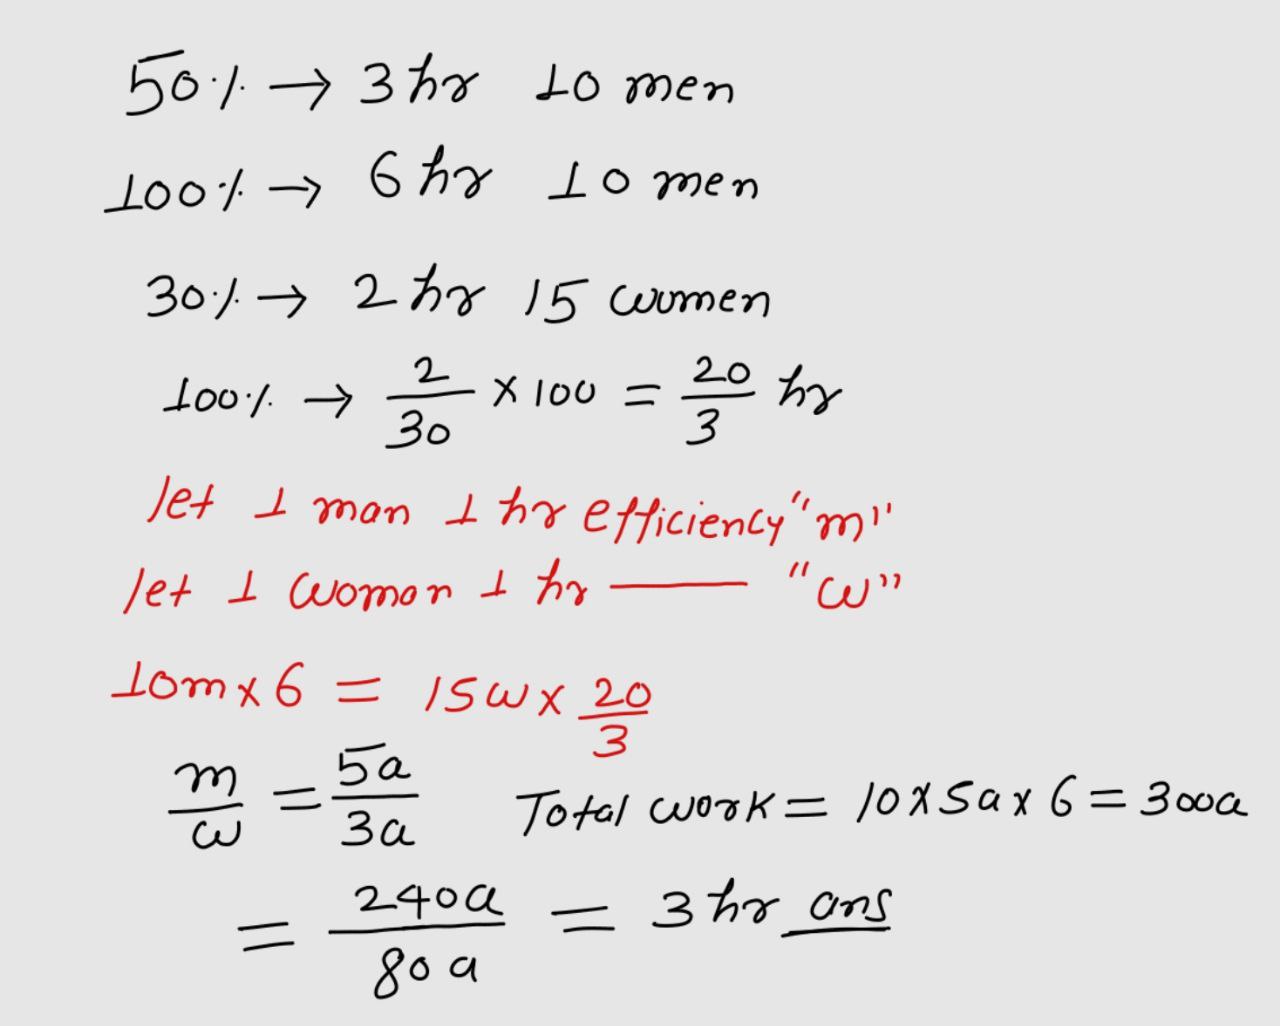 50% → 3 hr 10 men
100% → 6 hr 10 men
30% → 2 hr 15 women
100% → 2/30 × 100 = 20/3 hr
let 1 man 1 hr efficiency "m"
let 1 woman 1 hr —— "w"
10m × 6 = 15w × 20/3
m/w = 5a/3a Total work = 10 × 5a × 6 = 300a
= 240a/80a = 3 hr ans